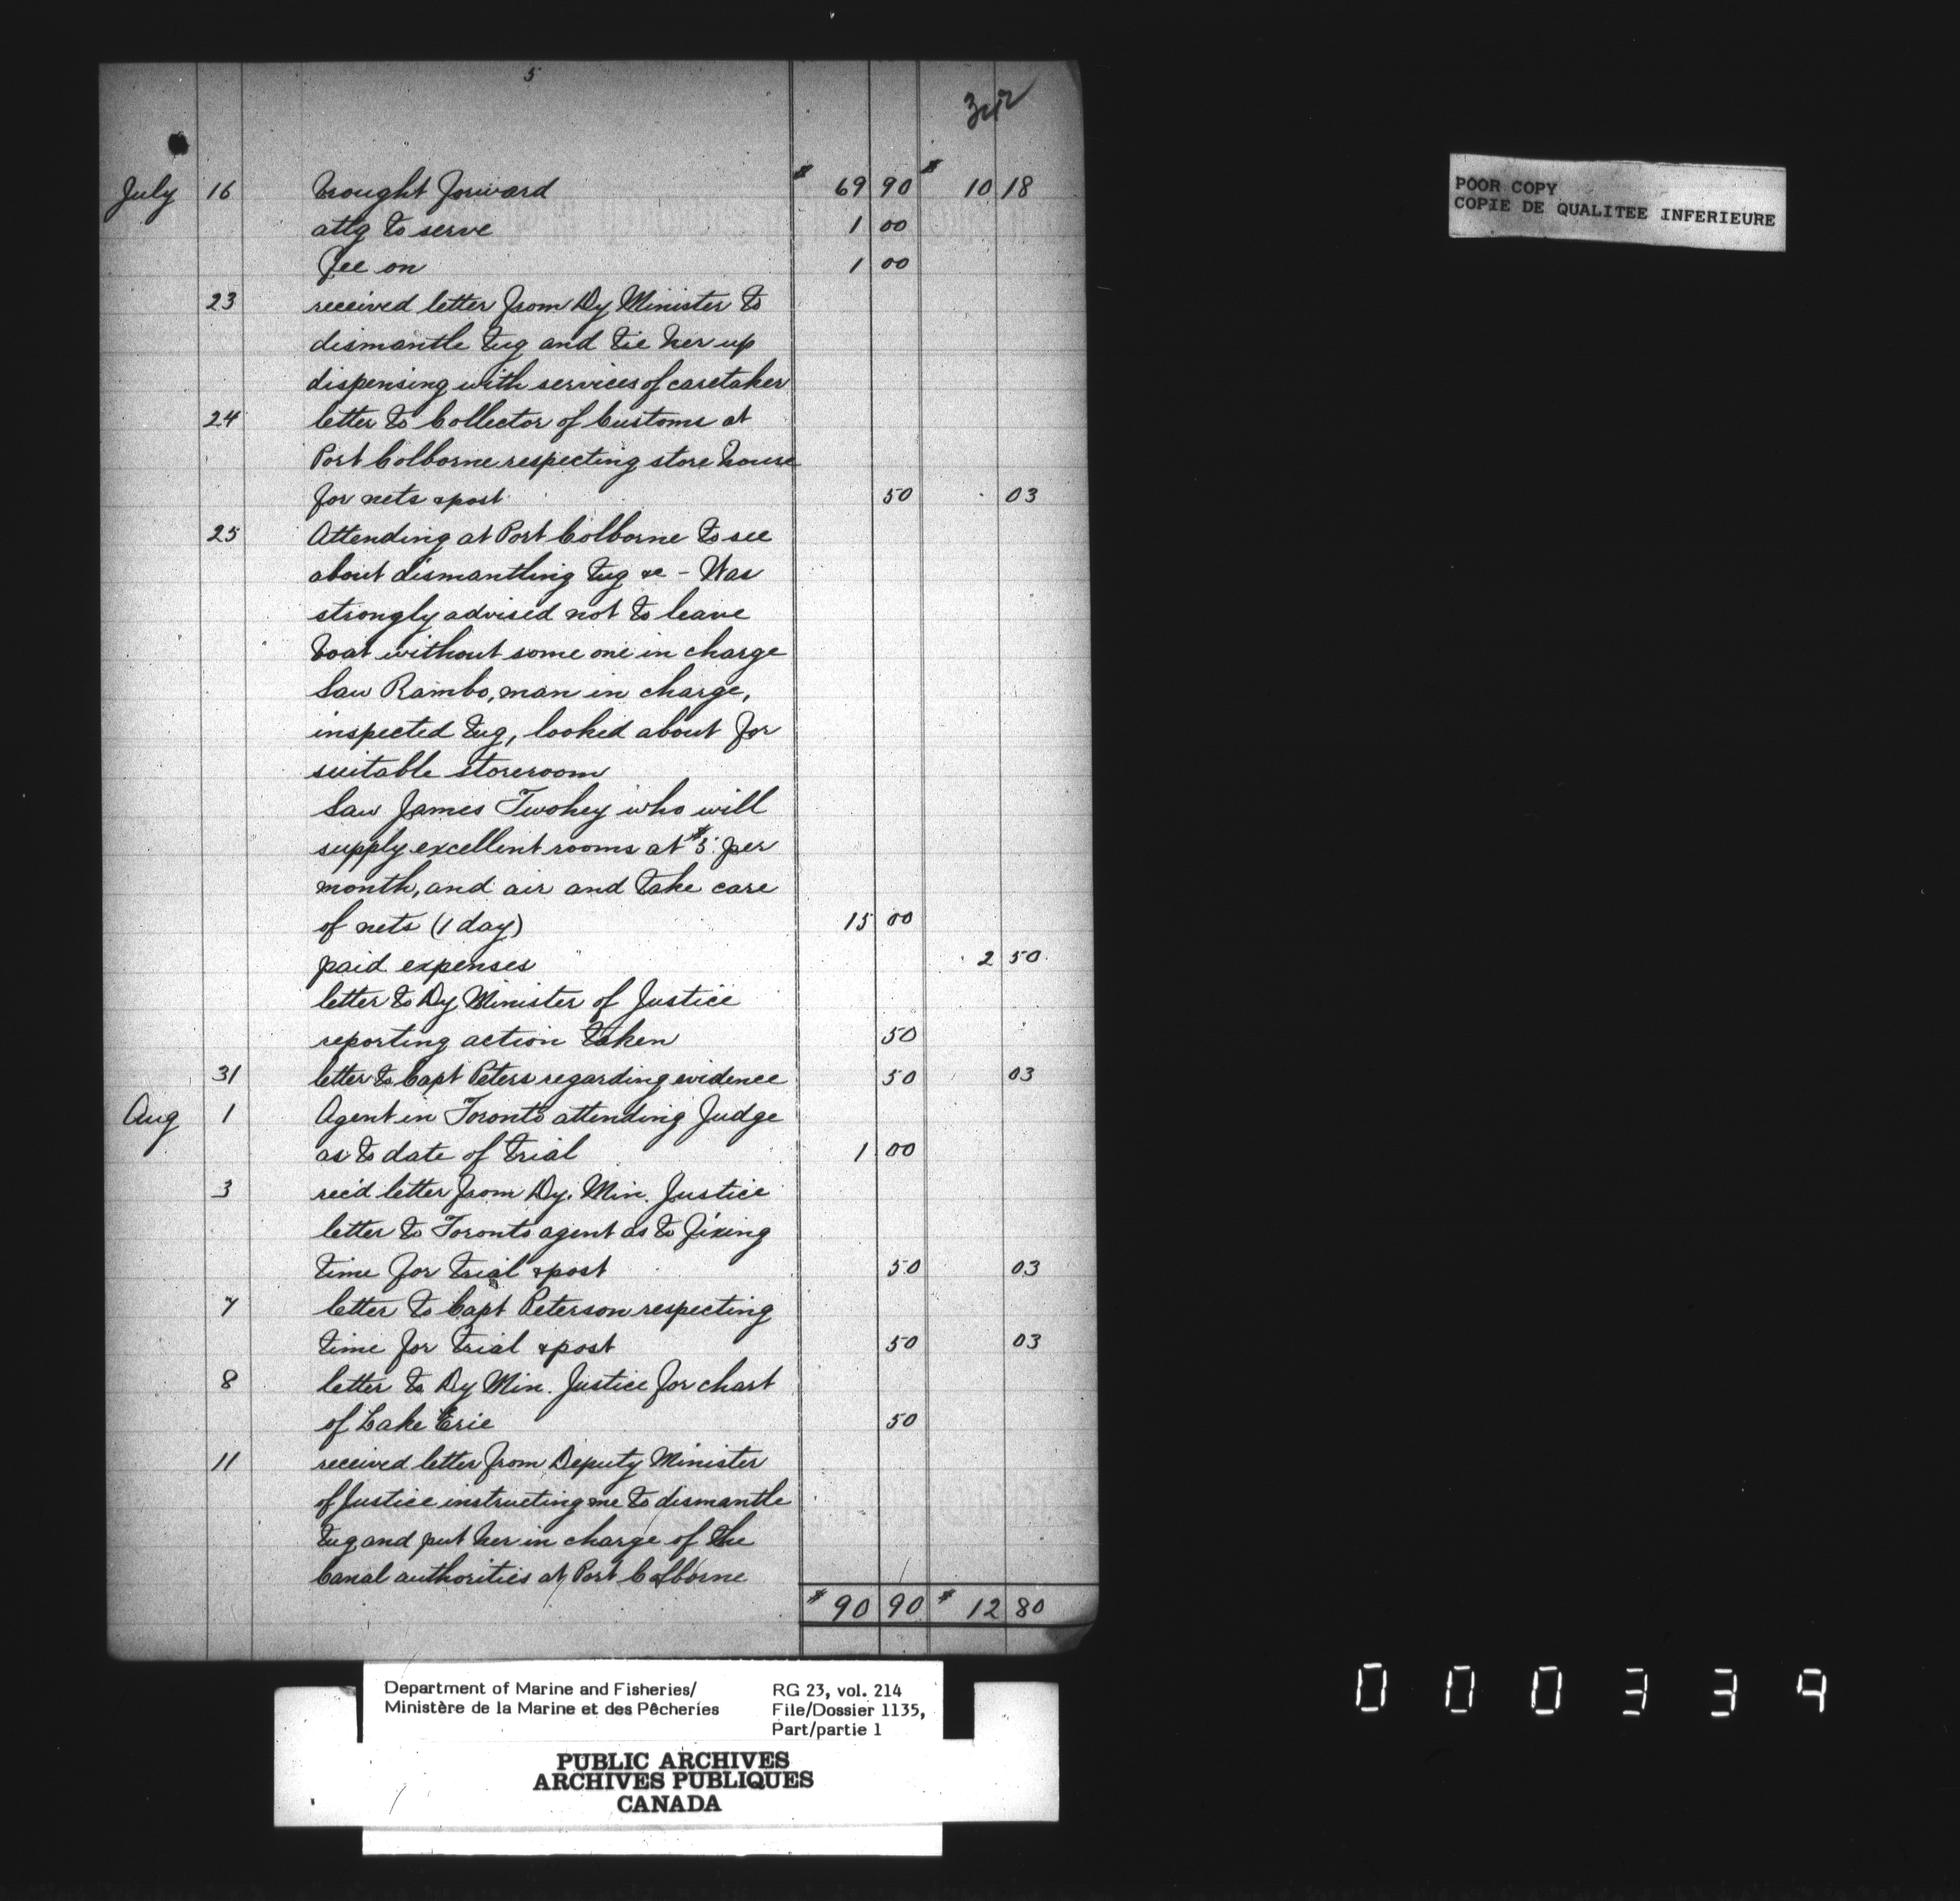 5
342
July 16 brought forward $ 69 90 $ 10 18
attg to serve 1 00
Fee on 1 00
23 received letter from Dy Minister to
dismantle tug and tie her up
dispensing with services of caretaker
24 letter to Collector of Customs at
Port Colborne respecting store house
for nets & post 50 03
25 Attending at Port Colborne to see
about dismantling tug &c - Was
strongly advised not to leave
boat without some one in charge
Saw Rambo, man in charge,
inspected tug, looked about for
suitable storeroom
Saw James Twohey who will
supply excellent rooms at $5 per
month, and air and take care
of nets (1 day) 15 00
paid expenses 2 50
letter to Dy Minister of Justice
reporting action taken 50
31 letter to Capt Peters regarding evidence 50 03
Aug 1 Agent in Toronto attending Judge
as to date of trial 1 00
3 rec'd letter from Dy. Min. Justice
letter to Toronto agent as to fixing
time for trial & post 50 03
7 letter to Capt Peterson respecting
time for trial & post 50 03
8 letter to Dy Min. Justice for chart
of Lake Erie 50
11 received letter from Deputy Minister
of Justice instructing me to dismantle
tug and put her in charge of the
Canal authorities at Port Colborne
$ 90 90 $ 12 80
POOR COPY
COPIE DE QUALITEE INFERIEURE
Department of Marine and Fisheries/ RG 23, vol. 214
Ministère de la Marine et des Pêcheries File/Dossier 1135,
Part/partie 1
PUBLIC ARCHIVES
ARCHIVES PUBLIQUES
CANADA
000339